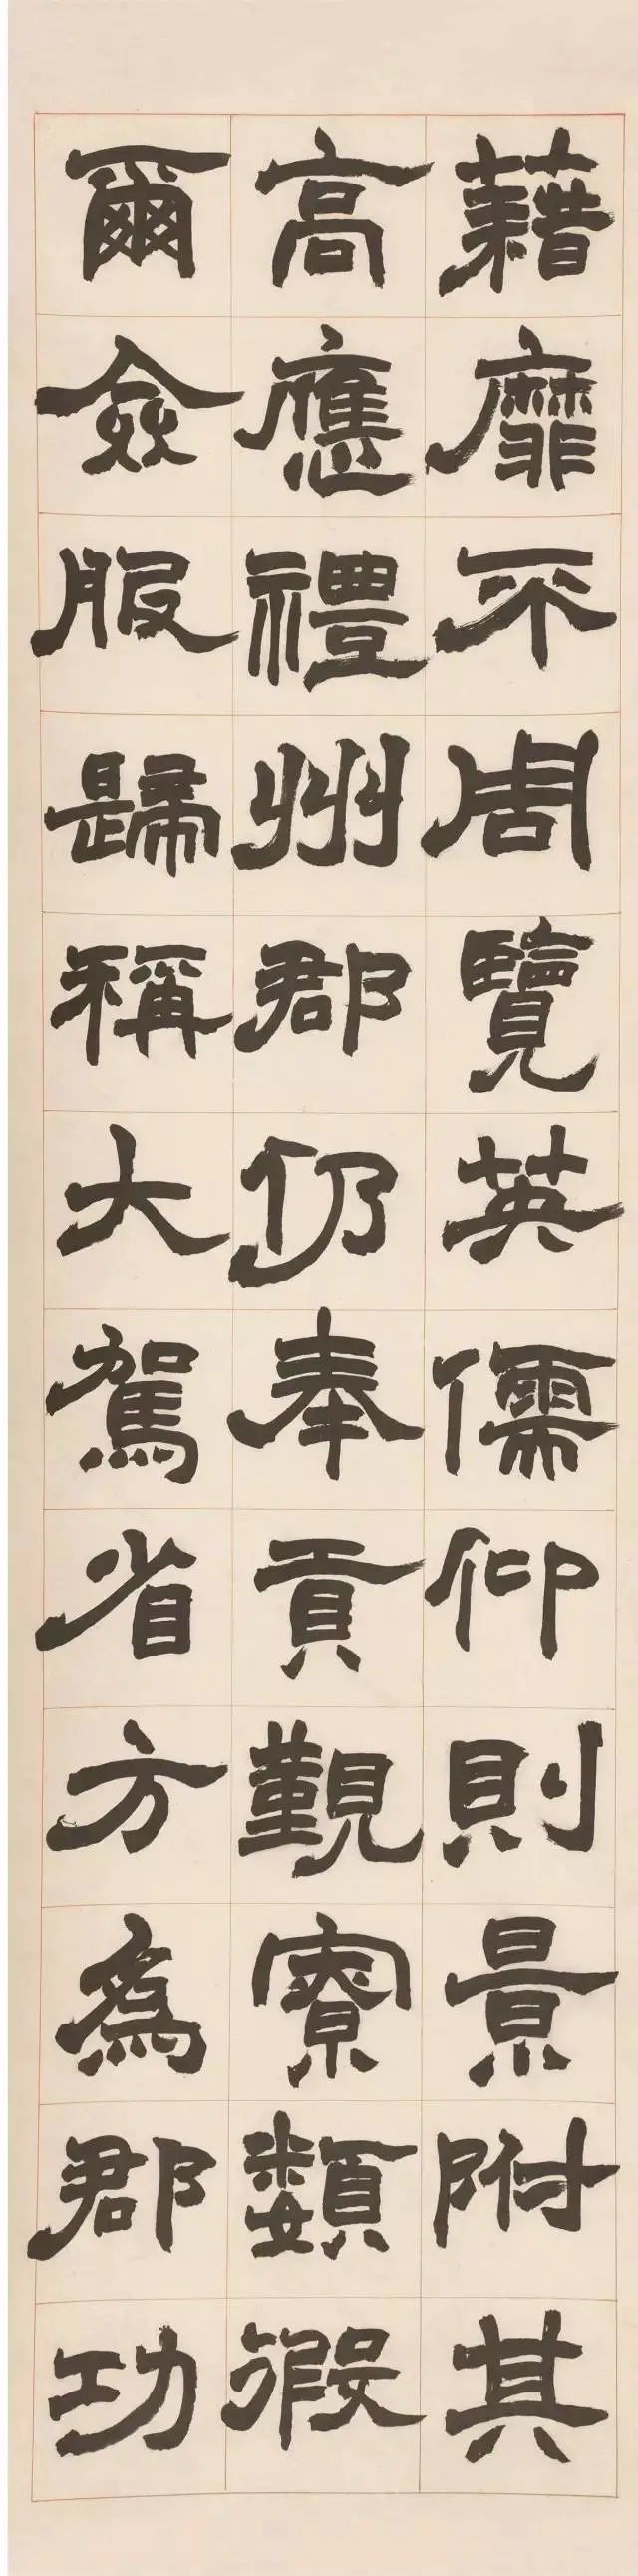 藉靡不周覽英儒仰則景附其
高應禮州郡仍奉貢覲寮類徦
爾僉服歸稱大駕省方爲郡功